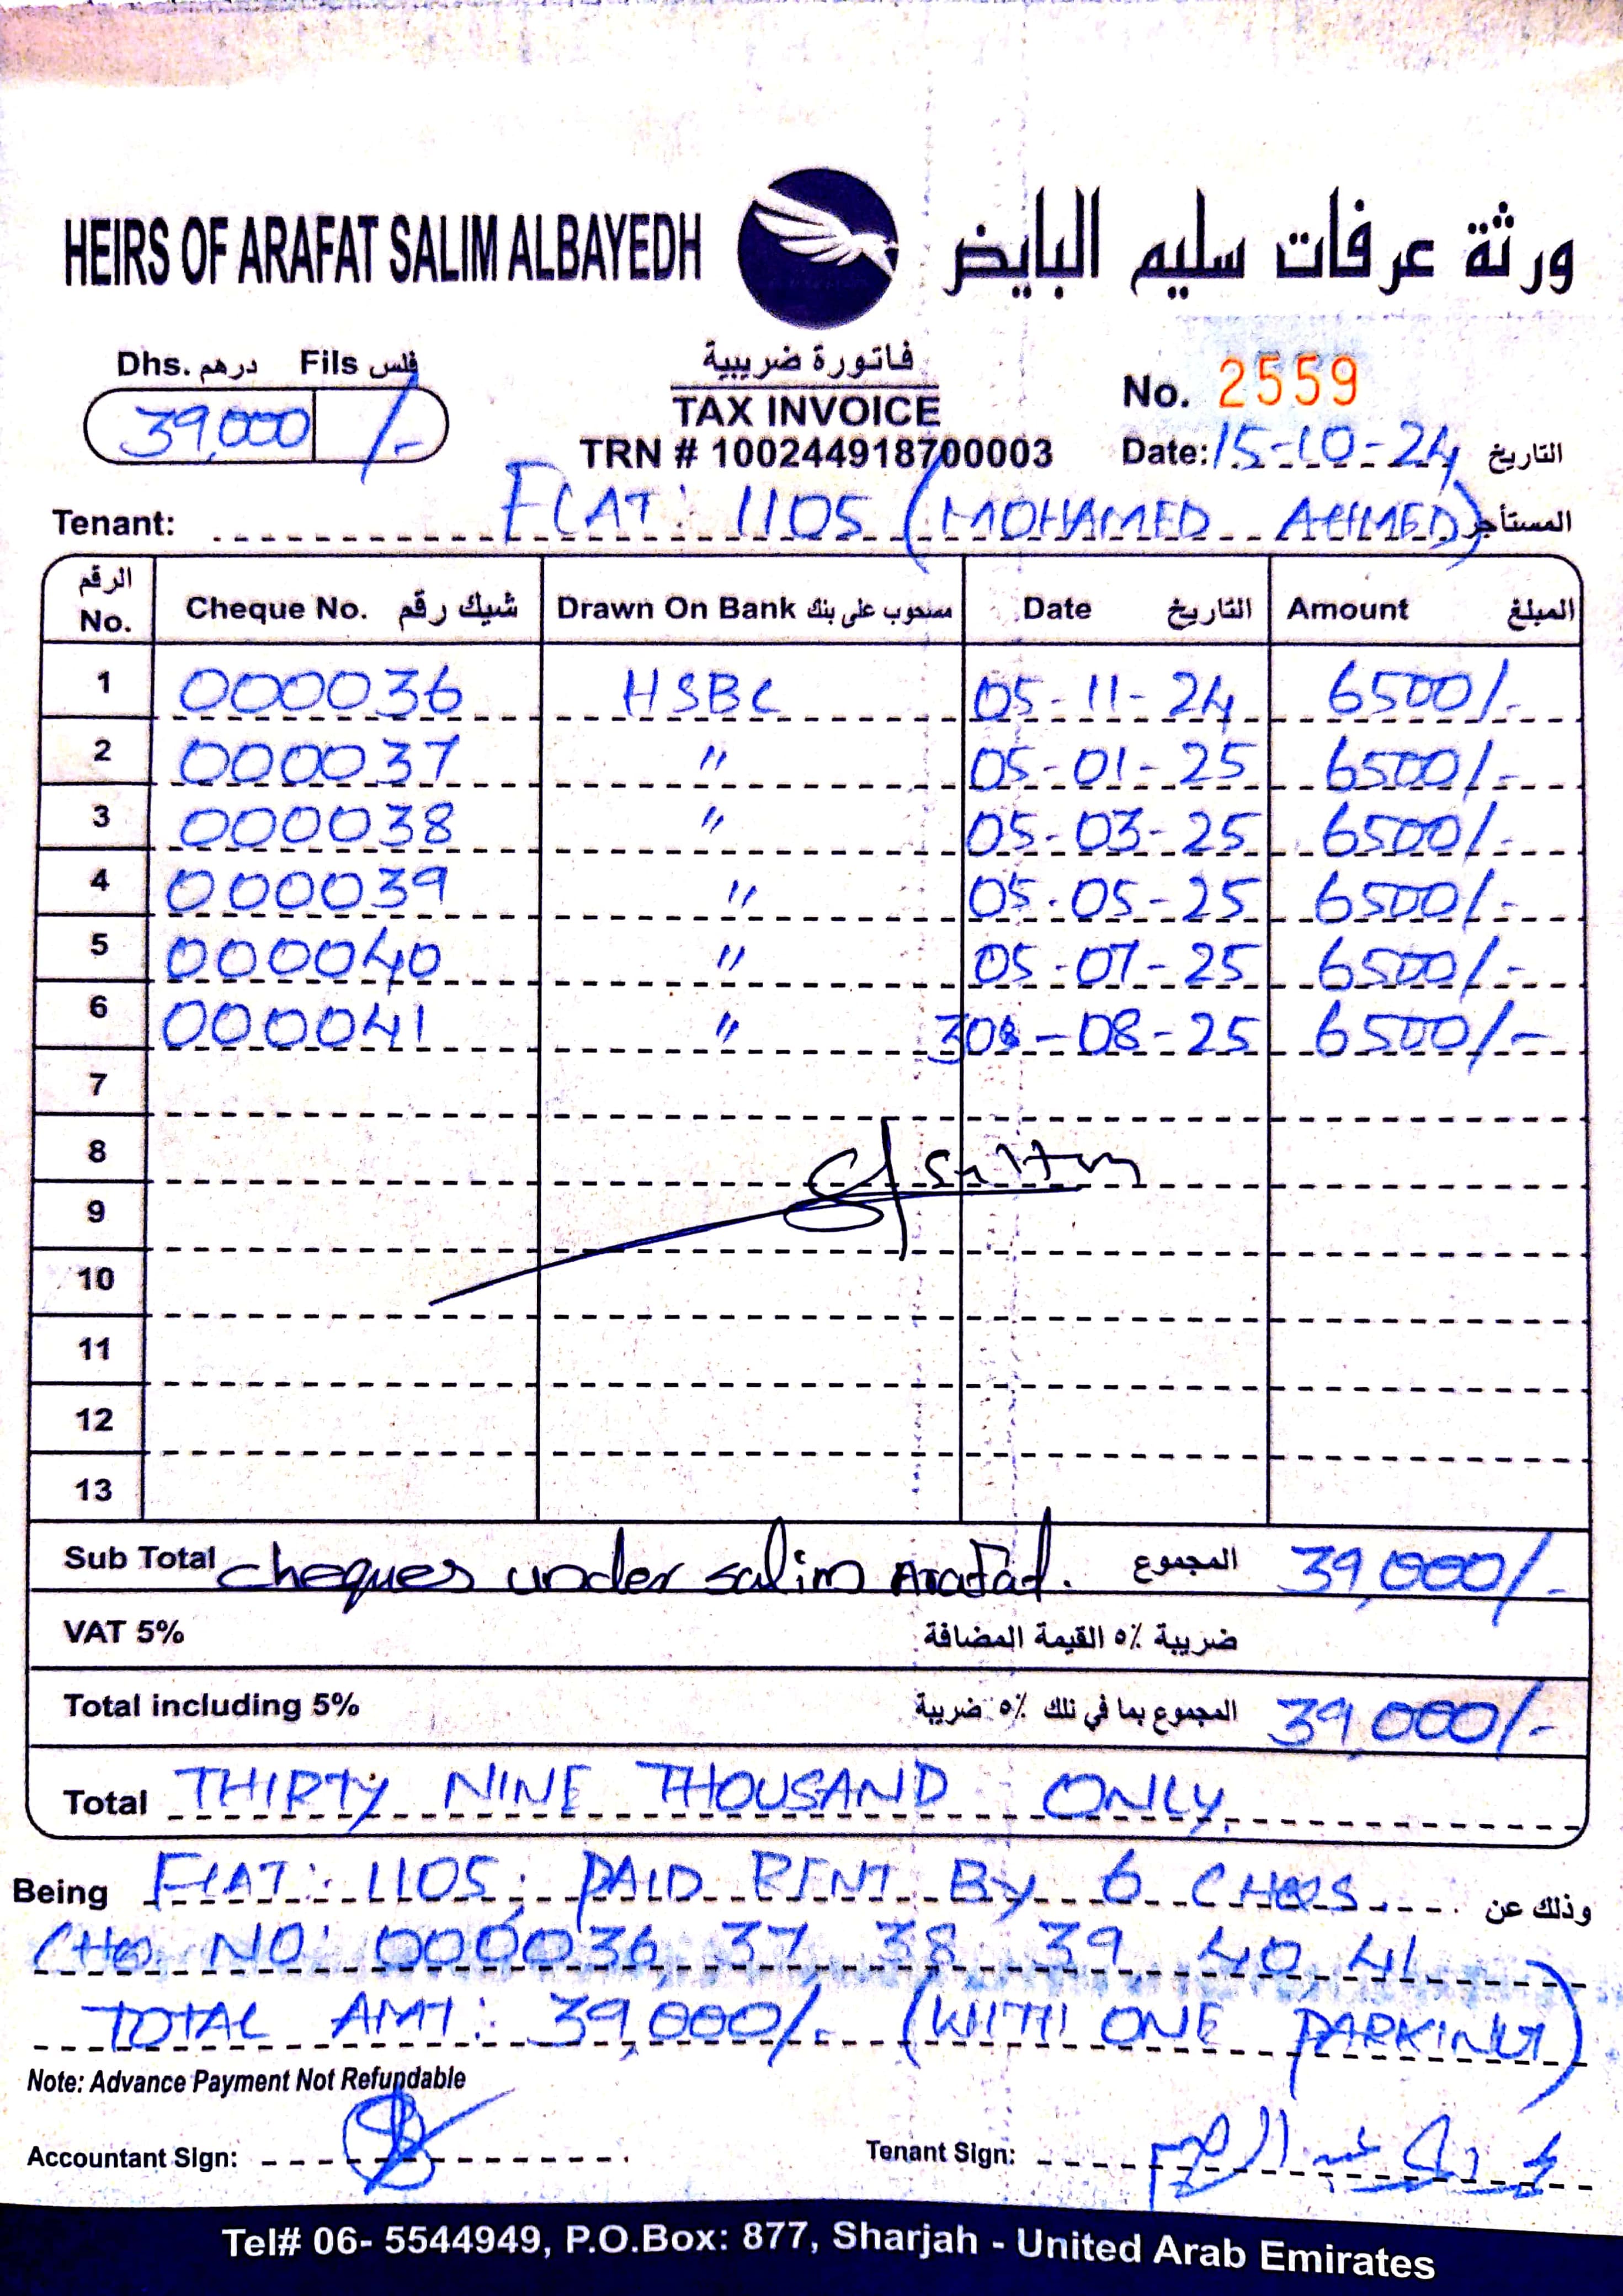 HEIRS OF ARAFAT SALIM ALBAYEDH ورثة عرفات سليم البايض
Dhs. درهم Fils فلس
39,000 /-
فاتورة ضريبية
TAX INVOICE
TRN # 100244918700003
No. 2559
Date: 15-10-24 التاريخ
Tenant: FLAT: 1105 (MOHAMED AHMED) المستأجر
الرقم No. Cheque No. شيك رقم Drawn On Bank مسحوب على بنك Date التاريخ Amount المبلغ
1 000036 HSBC 05-11-24 6500/-
2 000037 " 05-01-25 6500/-
3 000038 " 05-03-25 6500/-
4 000039 " 05-05-25 6500/-
5 000040 " 05-07-25 6500/-
6 000041 " 30-08-25 6500/-
7
8
9
10
11
12
13
Sub Total cheques under salim Arafat. المجموع 39,000/-
VAT 5% ضريبة ٥٪ القيمة المضافة
Total including 5% المجموع بما في ذلك ٥٪ ضريبة 39,000/-
Total THIRTY NINE THOUSAND ONLY.
Being FLAT: 1105, PAID RENT By 6 CHQS. وذلك عن
CHQ. NO: 000036, 37, 38, 39, 40, 41
TOTAL AMT: 39,000/- (WITH ONE PARKING)
Note: Advance Payment Not Refundable
Accountant Sign:
Tenant Sign:
Tel# 06- 5544949, P.O.Box: 877, Sharjah - United Arab Emirates